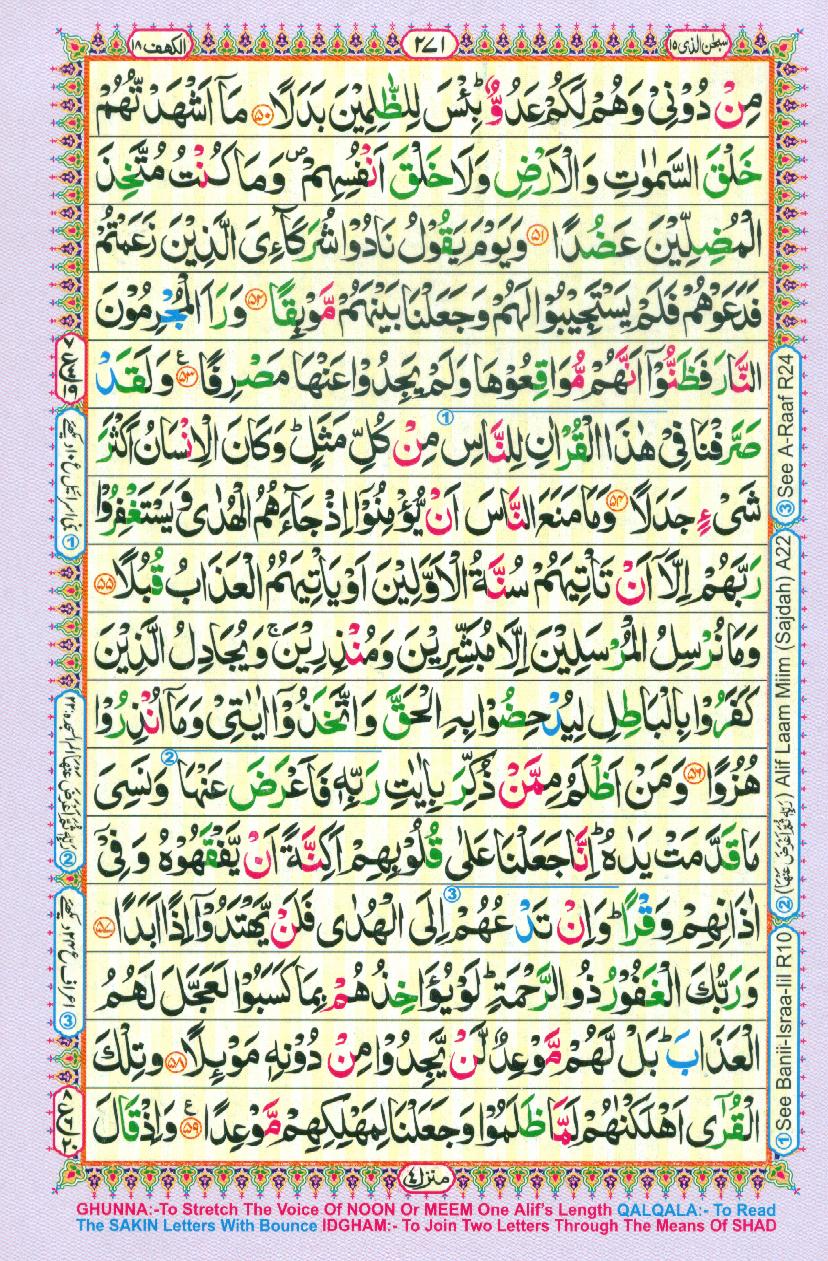 سبحٰن الذی ۱۵
۲۷۱
الکهف ۱۸
مِنْ دُوْنِیْ وَهُمْ لَكُمْ عَدُوٌّ ؕ بِئْسَ لِلظّٰلِمِیْنَ بَدَلًا ۵۰ مَاۤ اَشْهَدْتُّهُمْ
خَلْقَ السَّمٰوٰتِ وَالْاَرْضِ وَلَا خَلْقَ اَنْفُسِهِمْ ۪ وَمَا كُنْتُ مُتَّخِذَ
الْمُضِلِّیْنَ عَضُدًا ۵۱ وَیَوْمَ یَقُوْلُ نَادُوْا شُرَكَآءِیَ الَّذِیْنَ زَعَمْتُمْ
فَدَعَوْهُمْ فَلَمْ یَسْتَجِیْبُوْا لَهُمْ وَجَعَلْنَا بَیْنَهُمْ مَّوْبِقًا ۵۲ وَرَاَ الْمُجْرِمُوْنَ
النَّارَ فَظَنُّوْۤا اَنَّهُمْ مُّوَاقِعُوْهَا وَلَمْ یَجِدُوْا عَنْهَا مَصْرِفًا ۵۳ ع وَلَقَدْ
صَرَّفْنَا فِیْ هٰذَا الْقُرْاٰنِ لِلنَّاسِ مِنْ كُلِّ مَثَلٍ ؕ وَكَانَ الْاِنْسَانُ اَكْثَرَ
شَیْءٍ جَدَلًا ۵۴ وَمَا مَنَعَ النَّاسَ اَنْ یُّؤْمِنُوْۤا اِذْ جَآءَهُمُ الْهُدٰی وَیَسْتَغْفِرُوْا
رَبَّهُمْ اِلَّاۤ اَنْ تَاْتِیَهُمْ سُنَّةُ الْاَوَّلِیْنَ اَوْ یَاْتِیَهُمُ الْعَذَابُ قُبُلًا ۵۵
وَمَا نُرْسِلُ الْمُرْسَلِیْنَ اِلَّا مُبَشِّرِیْنَ وَمُنْذِرِیْنَ ۚ وَیُجَادِلُ الَّذِیْنَ
كَفَرُوْا بِالْبَاطِلِ لِیُدْحِضُوْا بِهِ الْحَقَّ وَاتَّخَذُوْۤا اٰیٰتِیْ وَمَاۤ اُنْذِرُوْا
هُزُوًا ۵۶ وَمَنْ اَظْلَمُ مِمَّنْ ذُكِّرَ بِاٰیٰتِ رَبِّهٖ فَاَعْرَضَ عَنْهَا وَنَسِیَ
مَا قَدَّمَتْ یَدٰهُ ؕ اِنَّا جَعَلْنَا عَلٰی قُلُوْبِهِمْ اَكِنَّةً اَنْ یَّفْقَهُوْهُ وَفِیْۤ
اٰذَانِهِمْ وَقْرًا ؕ وَاِنْ تَدْعُهُمْ اِلَی الْهُدٰی فَلَنْ یَّهْتَدُوْۤا اِذًا اَبَدًا ۵۷
وَرَبُّكَ الْغَفُوْرُ ذُو الرَّحْمَةِ ؕ لَوْ یُؤَاخِذُهُمْ بِمَا كَسَبُوْا لَعَجَّلَ لَهُمُ
الْعَذَابَ ؕ بَلْ لَّهُمْ مَّوْعِدٌ لَّنْ یَّجِدُوْا مِنْ دُوْنِهٖ مَوْىِٕلًا ۵۸ وَتِلْكَ
الْقُرٰۤی اَهْلَكْنٰهُمْ لَمَّا ظَلَمُوْا وَجَعَلْنَا لِمَهْلِكِهِمْ مَّوْعِدًا ۵۹ ع وَاِذْ قَالَ
منزل ۴
① See Banii-Israa-Iil R10
② (رَبِّهٖ ثُمَّ اَعْرَضَ عَنْهَا) Alif Laam Miim (Sajdah) A22
③ See A-Raaf R24
GHUNNA:-To Stretch The Voice Of NOON Or MEEM One Alif's Length QALQALA:- To Read
The SAKIN Letters With Bounce IDGHAM:- To Join Two Letters Through The Means Of SHAD